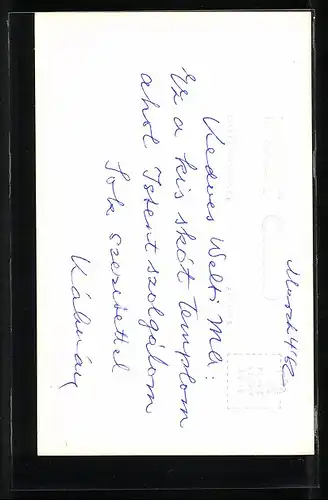 March 4 62
Kedves Welti Ma:
Ez a kis skót Templom
ahol Istent szolgálom
Sok szeretettel
Kálmán